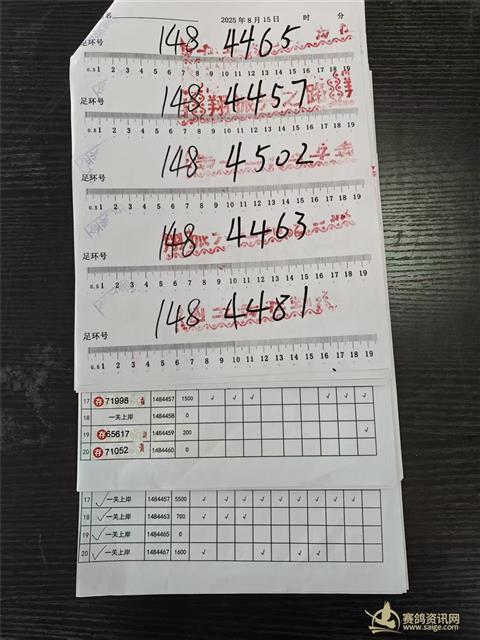 名 2025年8月15日 时 分
足环号 148 4465
0.5 1 2 3 4 5 6 7 8 9 10 11 12 13 14 15 16 17 18 19
足环号 148 4457
0.5 1 2 3 4 5 6 7 8 9 10 11 12 13 14 15 16 17 18 19
足环号 148 4502
0.5 1 2 3 4 5 6 7 8 9 10 11 12 13 14 15 16 17 18 19
足环号 148 4463
0.5 1 2 3 4 5 6 7 8 9 10 11 12 13 14 15 16 17 18 19
足环号 148 4481
0.5 1 2 3 4 5 6 7 8 9 10 11 12 13 14 15 16 17 18 19
17 存71998 1484457 1500 √ √ √ √ √ √
18 一关上岸 1484458 0
19 存65617 1484459 200 √
20 存71052 1484460 0
17 一关上岸 1484457 5500 √ √ √ √ √ √ √ √
18 一关上岸 1484463 700 √ √ √
19 一关上岸 1484465 0
20 一关上岸 1484467 1600 √ √ √ √
赛鸽资讯网
www.saige.com